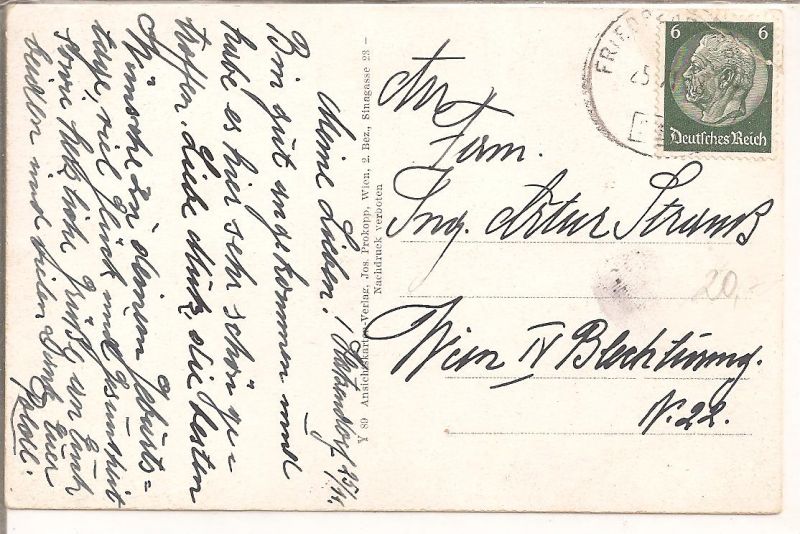 Meine Lieben!
Bin gut angekommen und
habe es hier sehr schön ge-
troffen. Liebe die besten
Wünsche zu deinem Geburts=
tage, viel Glück und Gesundheit
sowie herzliche Grüße an Euch
beiden und vielen Dank Euer
Y 89 Ansichtskarten-Verlag, Jos. Prokopp, Wien, 2. Bez., Sinagasse 23 –
Nachdruck verboten
An
Fam.
Ing. Artur Strauß
Wien IV Blechturmg.
N. 22.
6 6
Deutsches Reich
25
20,-